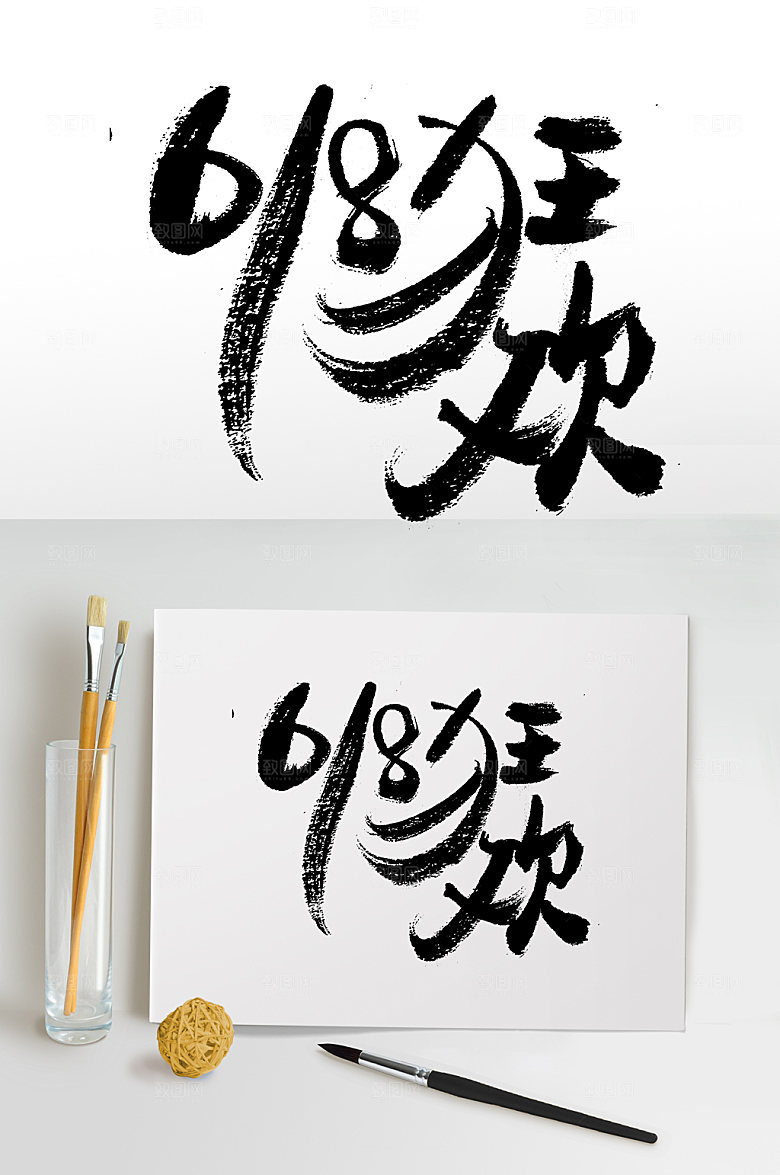 618狂欢
618狂欢